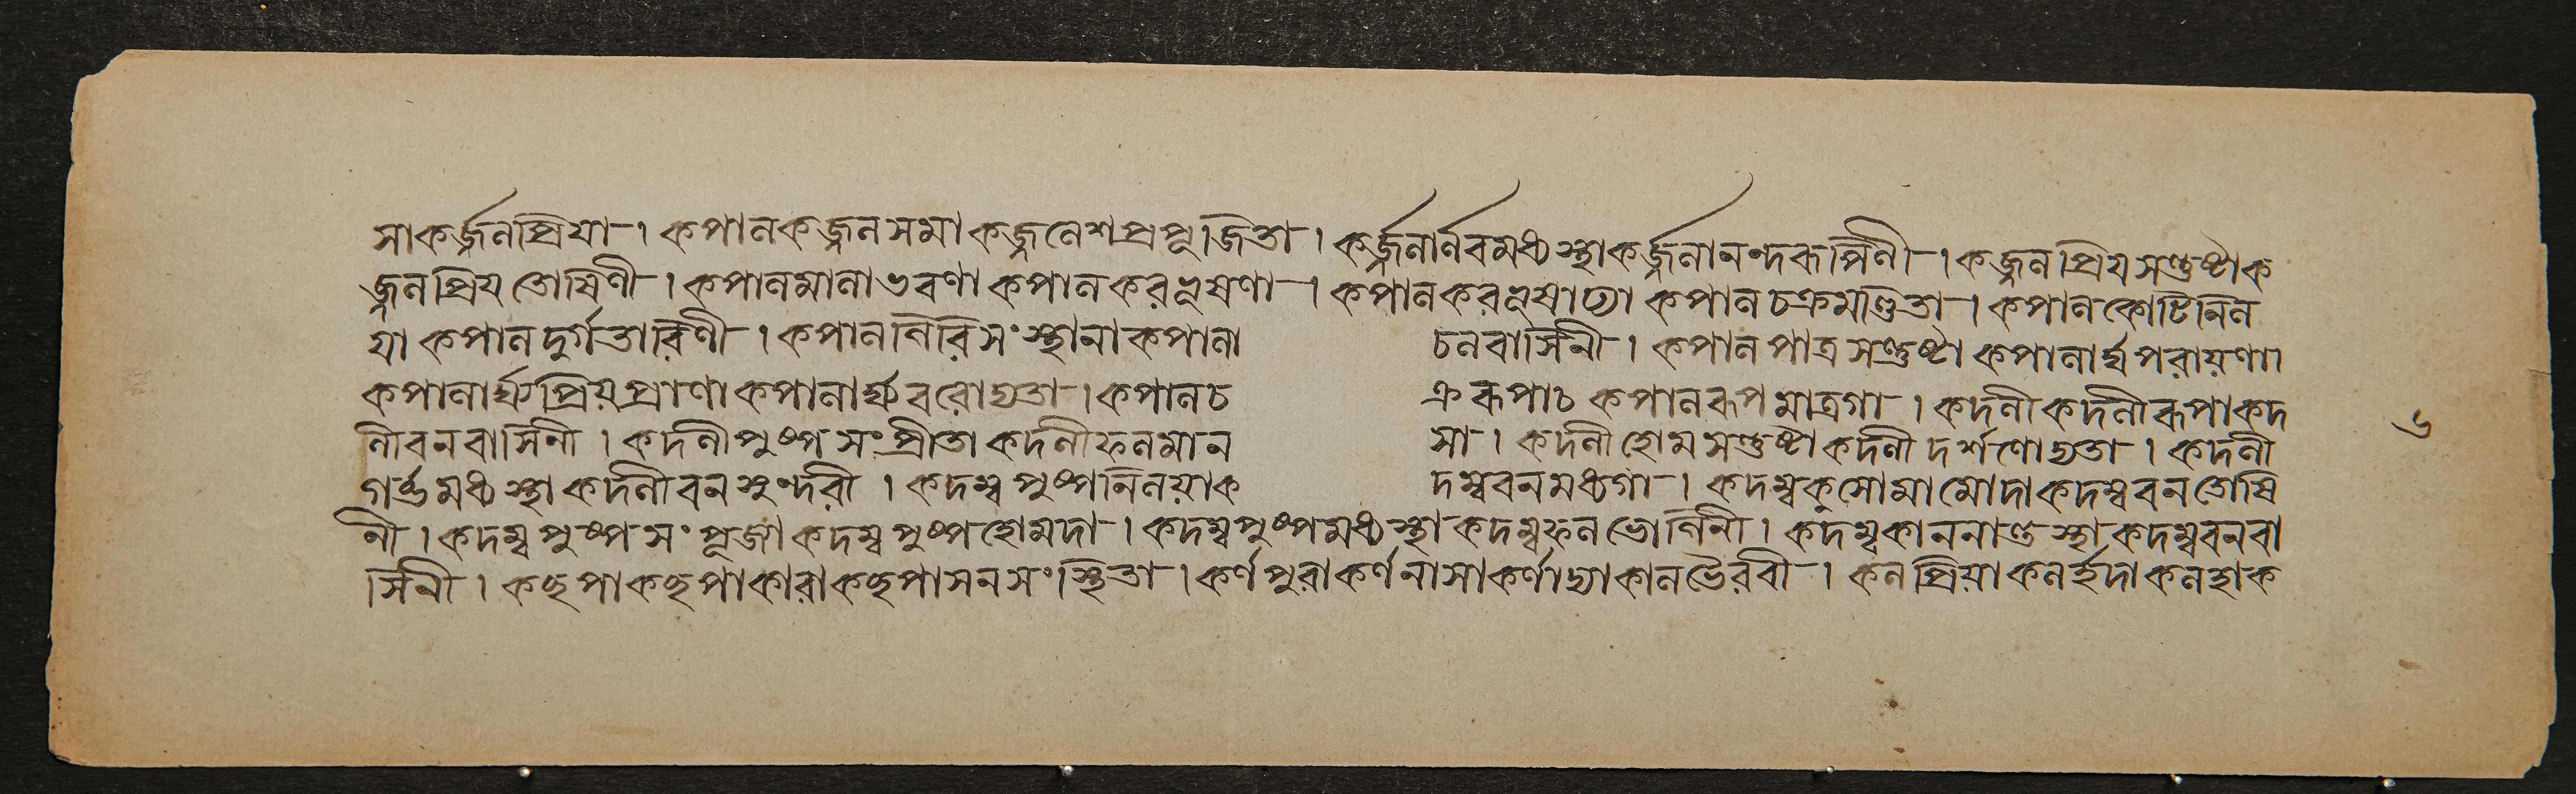 সাকর্জ্জলপ্রিয়া। কপালকজ্জলসমা কজ্জলেশপ্রপূজিতা। কর্জ্জলার্ণবমধ্যস্থাকর্জ্জলানন্দরূপিণী। কজ্জলপ্রিয়সন্তুষ্টাক
জ্জলপ্রিয়তোষিণী। কপালমালাভরণা কপালকরভূষণা। কপালকরভূষাঢ্যা কপালচক্রমণ্ডিতা। কপালকোটিনিল
য়া কপালদুর্গতারিণী। কপালগিরিসংস্থানাকপালা চলবাসিনী। কপালপাত্রসন্তুষ্টা কপালার্ঘ্যপরায়ণা।
কপালার্ঘ্যপ্রিয়প্রাণা কপালার্ঘ্যবরোদ্যতা। কপালচ ক্ররূপাচ কপালরূপমাত্রগা। কদলীকদলীরূপাকদ
লীবনবাসিনী। কদলীপুষ্পসংপ্রীতা কদলীফলমাল সা। কদলীহোমসন্তুষ্টাকদলী দর্শণোদ্যতা। কদলী
গর্ব্ভমধ্যস্থাকদলীবনসুন্দরী। কদম্বপুষ্পনিলয়াক দম্ববনমধ্যগা। কদম্বকুসোমামোদাকদম্ববনতোষি
নী। কদম্বপুষ্পসংপূজ্যাকদম্বপুষ্পহোমদা। কদম্বপুষ্পমধ্যস্থাকদম্বফলভোগিনী। কদম্বকাননান্তস্থাকদম্ববনবা
সিনী। কচ্ছপাকচ্ছপাকারাকচ্ছপাসনসংস্থিতা। কর্ণপুরাকর্ণনাসাকর্ণাদ্যাকালভৈরবী। কলপ্রিয়াকলহদাকলহাক
৬